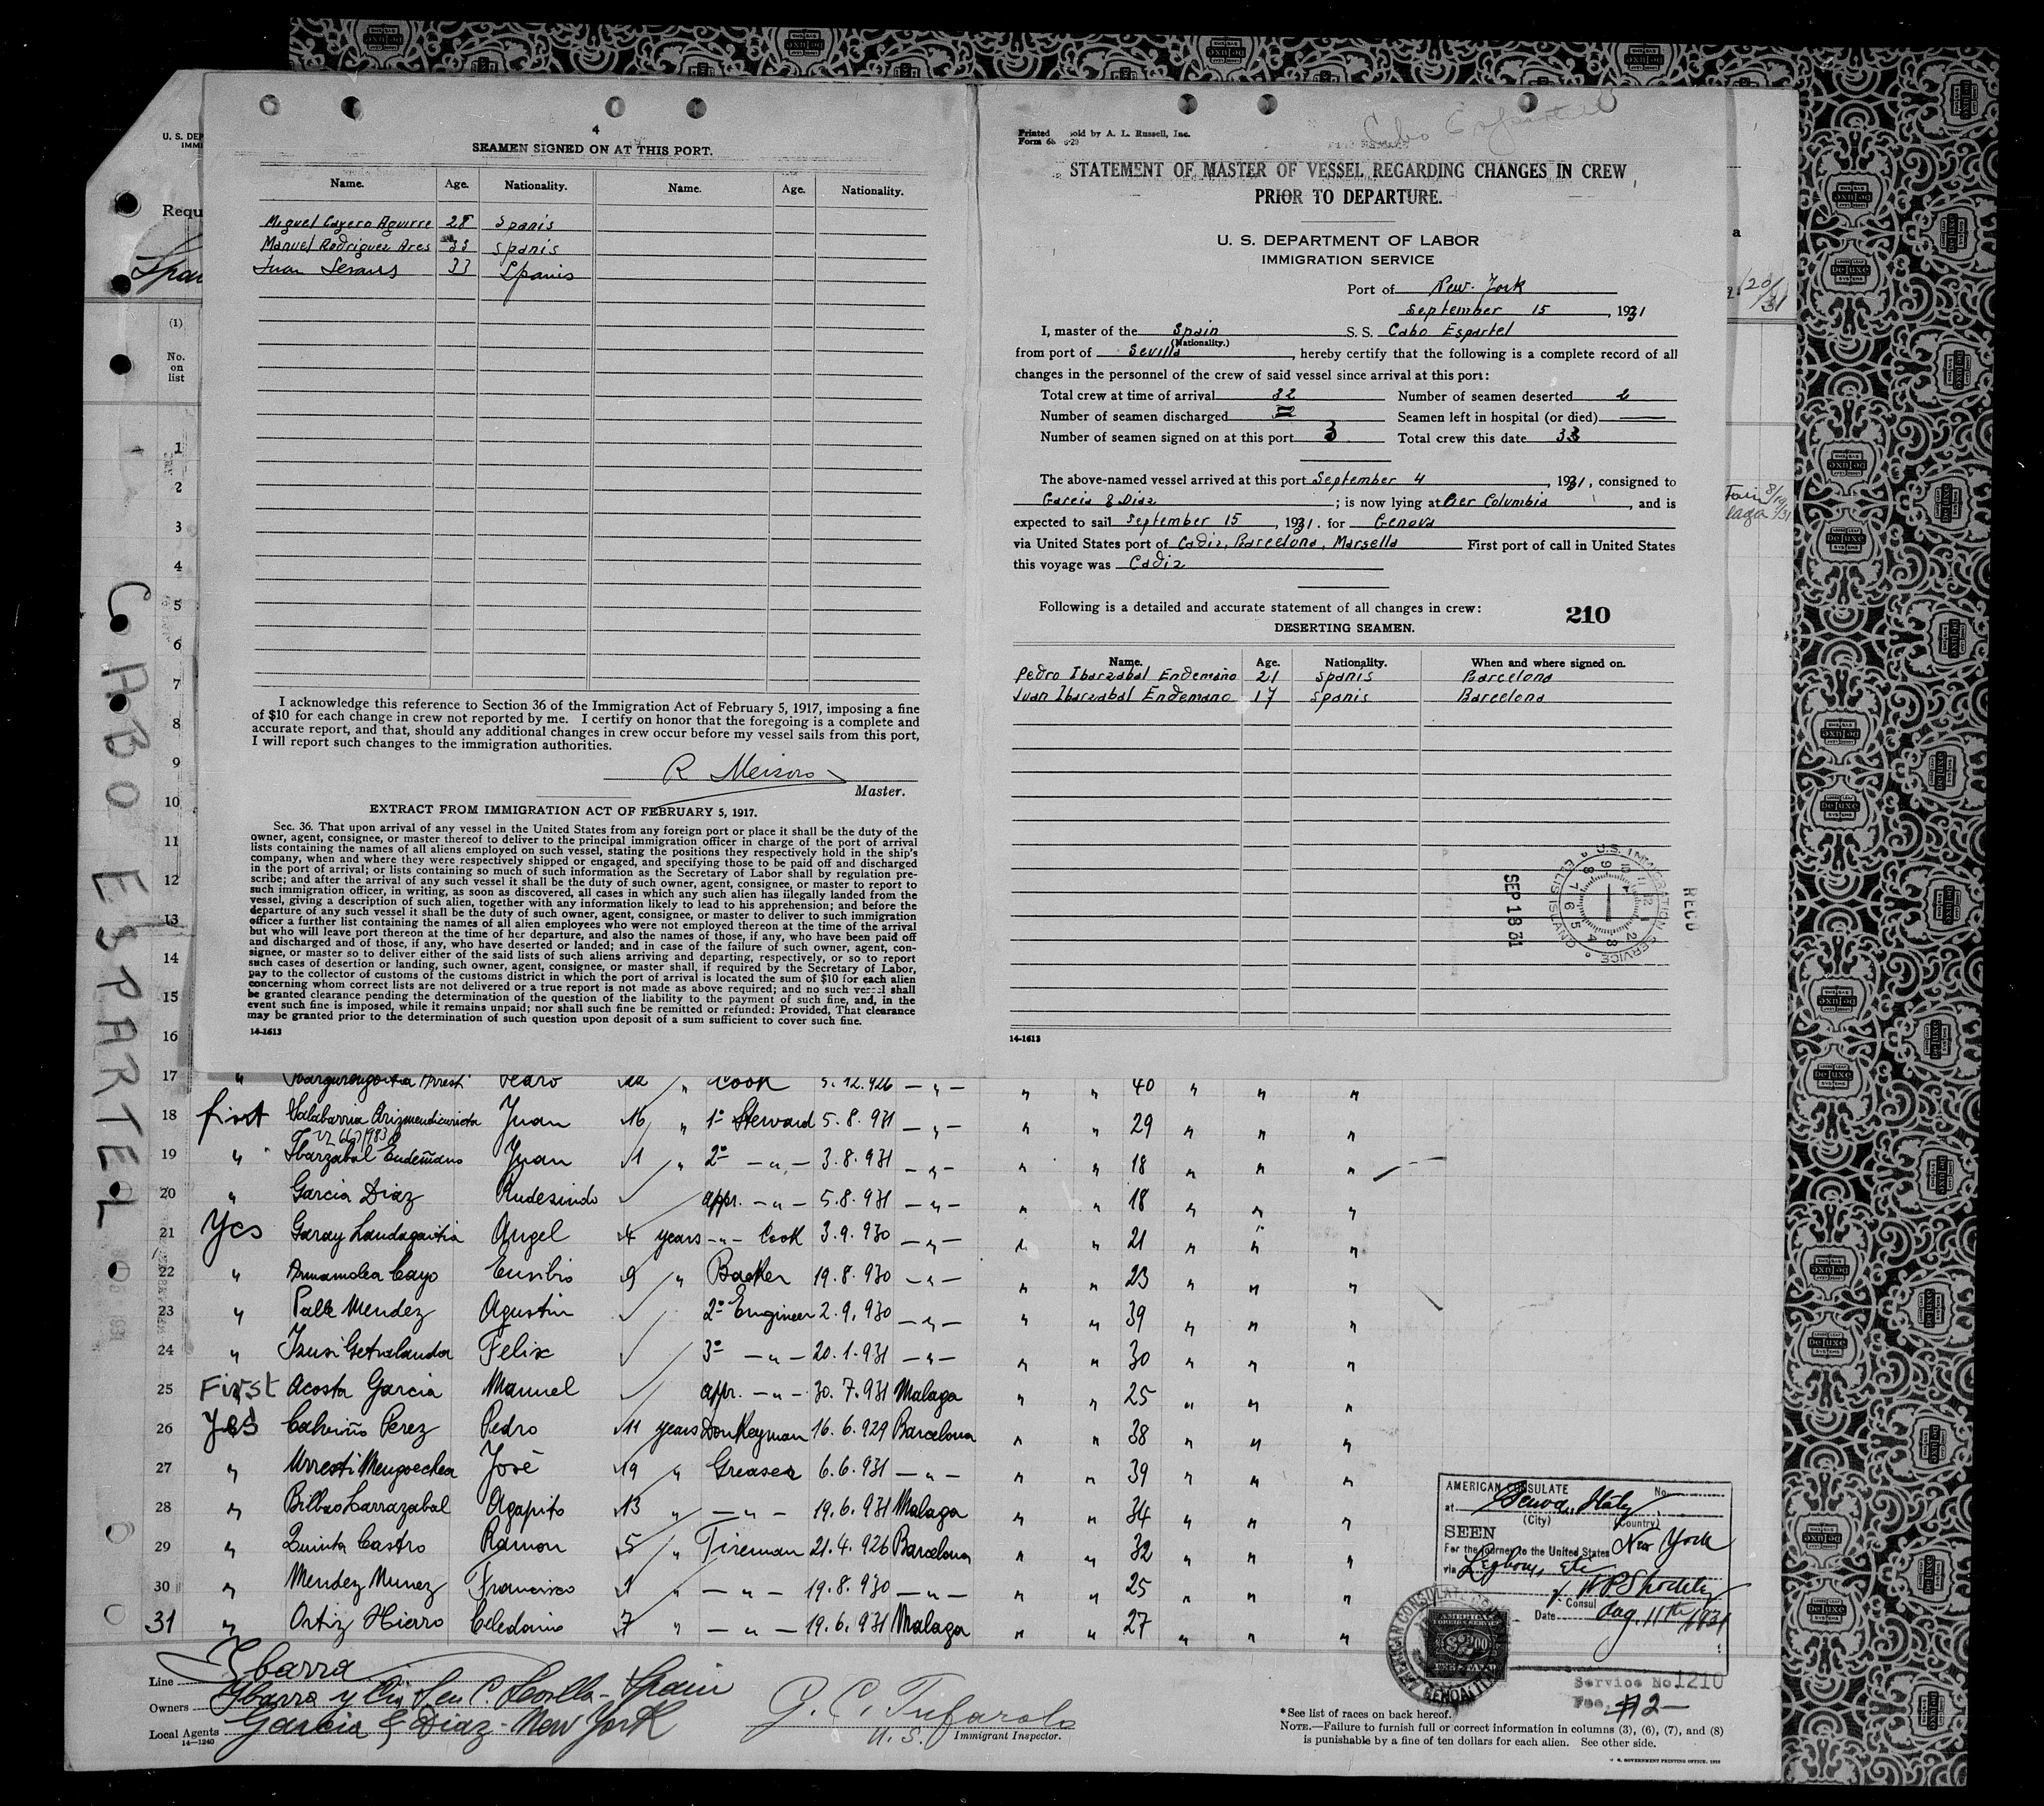 4
SEAMEN SIGNED ON AT THIS PORT.
Name. Age. Nationality. Name. Age. Nationality.
Miguel Cayero Aguirre 28 Spanis
Manuel Rodriguez Ares 33 Spanis
Juan 33 Spanis
I acknowledge this reference to Section 36 of the Immigration Act of February 5, 1917, imposing a fine
of $10 for each change in crew not reported by me. I certify on honor that the foregoing is a complete and
accurate report, and that, should any additional changes in crew occur before my vessel sails from this port,
I will report such changes to the immigration authorities.
R
Master.
EXTRACT FROM IMMIGRATION ACT OF FEBRUARY 5, 1917.
Sec. 36. That upon arrival of any vessel in the United States from any foreign port or place it shall be the duty of the
owner, agent, consignee, or master thereof to deliver to the principal immigration officer in charge of the port of arrival
lists containing the names of all aliens employed on such vessel, stating the positions they respectively hold in the ship's
company, when and where they were respectively shipped or engaged, and specifying those to be paid off and discharged
in the port of arrival; or lists containing so much of such information as the Secretary of Labor shall by regulation pre-
scribe; and after the arrival of any such vessel it shall be the duty of such owner, agent, consignee, or master to report to
such immigration officer, in writing, as soon as discovered, all cases in which any such alien has illegally landed from the
vessel, giving a description of such alien, together with any information likely to lead to his apprehension; and before the
departure of any such vessel it shall be the duty of such owner, agent, consignee, or master to deliver to such immigration
officer a further list containing the names of all alien employees who were not employed thereon at the time of the arrival
but who will leave port thereon at the time of her departure, and also the names of those, if any, who have been paid off
and discharged and of those, if any, who have deserted or landed; and in case of the failure of such owner, agent, con-
signee, or master so to deliver either of the said lists of such aliens arriving and departing, respectively, or so to report
such cases of desertion or landing, such owner, agent, consignee, or master shall, if required by the Secretary of Labor,
pay to the collector of customs of the customs district in which the port of arrival is located the sum of $10 for each alien
concerning whom correct lists are not delivered or a true report is not made as above required; and no such vessel shall
be granted clearance pending the determination of the question of the liability to the payment of such fine, and, in the
event such fine is imposed, while it remains unpaid; nor shall such fine be remitted or refunded: Provided, That clearance
may be granted prior to the determination of such question upon deposit of a sum sufficient to cover such fine.
14-1613
Cabo Espartel
Printed sold by A. L. Russell, Inc.
Form
STATEMENT OF MASTER OF VESSEL REGARDING CHANGES IN CREW
PRIOR TO DEPARTURE.
U. S. DEPARTMENT OF LABOR
IMMIGRATION SERVICE
Port of New-York
September 15, 1931
I, master of the Spain S. S. Cabo Espartel
(Nationality.)
from port of Sevilla, hereby certify that the following is a complete record of all
changes in the personnel of the crew of said vessel since arrival at this port:
Total crew at time of arrival 32 Number of seamen deserted 2
Number of seamen discharged Seamen left in hospital (or died) —
Number of seamen signed on at this port 3 Total crew this date 33
The above-named vessel arrived at this port September 4, 1931, consigned to
Garcia & Diaz; is now lying at Pier Columbia, and is
expected to sail September 15, 1931. for Genova
via United States port of Cadiz, Barcelona, Marsella First port of call in United States
this voyage was Cadiz
Following is a detailed and accurate statement of all changes in crew:
210
DESERTING SEAMEN.
Name. Age. Nationality. When and where signed on.
Pedro Ibarzabal Endemaño 21 Spanis Barcelona
Juan Ibarzabal Endemano 17 Spanis Barcelona
U.S. IMMIGRATION SERVICE ELLIS ISLAND
SEP 18 31
REC'D
14-1613
U. S. DEP
IMMI
Requ
Spa
(1)
No.
on
list
1
2
3
4
5
6
7
8
9
10
11
12
13
14
15
16
CABO ESPARTEL
17 " Pedro 22 " Cook 5.12.926 —"— " " 40 " " "
18 first Juan 16 " 1º Steward 5.8.931 —"— " " 29 " " "
19 " Ibarzabal Endemaño Juan 1 " 2º —"— 3.8.931 —"— " " 18 " " "
20 " Garcia Diaz Rudesindo appr. —"— 5.8.931 —"— " " 18 " " "
21 Yes Garay Landagaitia Angel 4 years —"— Cook 3.9.930 —"— " " 21 " " "
22 " Cayo Eusibio 9 " Backer 19.8.930 —"— " " 23 " " "
23 " Mendez Agustin 2º Engineer 2.9.930 —"— " " 39 " " "
24 " Felix 3º —"— 20.1.931 —"— " " 30 " " "
25 First Acosta Garcia Manuel appr. —"— 30.7.931 Malaga " " 25 " " "
26 Yes Calviño Perez Pedro 11 years Donkeyman 16.6.929 Barcelona " " 38 " " "
27 " Urresti Mengoechea José 19 " Greaser 6.6.931 —"— " " 39 " " "
28 " Bilbao Larrazabal Agapito 13 " —"— 19.6.931 Malaga " " 34 " " "
29 " Quinta Castro Ramon 5 " Fireman 21.4.926 Barcelona " " 32 " " "
30 " Mendez Nunez Francisco 1 " —"— 19.8.930 —"— " " 25 " " "
31 " Ortiz Hierro Celedonio 7 " —"— 19.6.931 Malaga " " 27 " " "
Line Ybarra
Owners Ybarra y Cia Sen C. Sevilla - Spain
Local Agents Garcia & Diaz - New York
14—1240
G. C. Tufarolo
U. S. Immigrant Inspector.
AMERICAN CONSULATE No.
at Genoa, Italy
(City) (Country)
SEEN
For the journey to the United States New York
via Leghorn, etc
Consul
Date Aug. 11th 1931
Service No 1210
Fee $2—
* See list of races on back hereof.
NOTE.—Failure to furnish full or correct information in columns (3), (6), (7), and (8)
is punishable by a fine of ten dollars for each alien. See other side.
U. S. GOVERNMENT PRINTING OFFICE